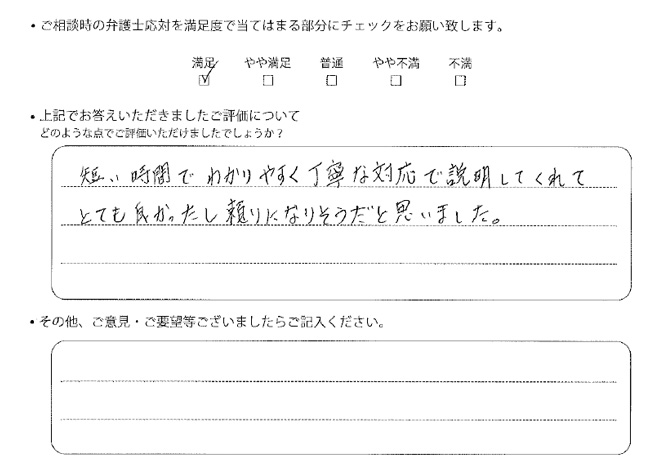 ・ご相談時の弁護士応対を満足度で当てはまる部分にチェックをお願い致します。
満足 やや満足 普通 やや不満 不満
・上記でお答えいただきましたご評価について
どのような点でご評価いただけましたでしょうか？
短い時間でわかりやすく丁寧な対応で説明してくれて
とても良かったし頼りになりそうだと思いました。
・その他、ご意見・ご要望等ございましたらご記入ください。